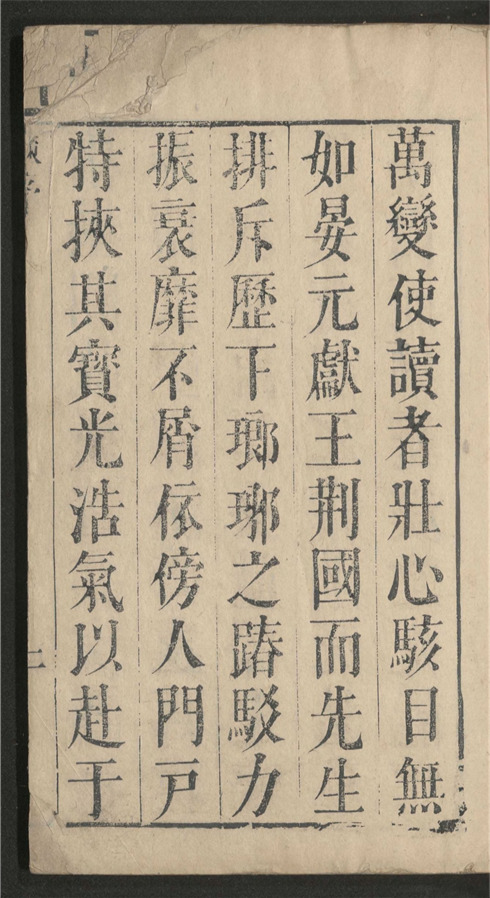 萬變使讀者壯心駭目無
如晏元獻王荆國而先生
排斥歷下瑯琊之踳駁力
振衰靡不屑依傍人門戸
特挾其寳光浩氣以赴于
二